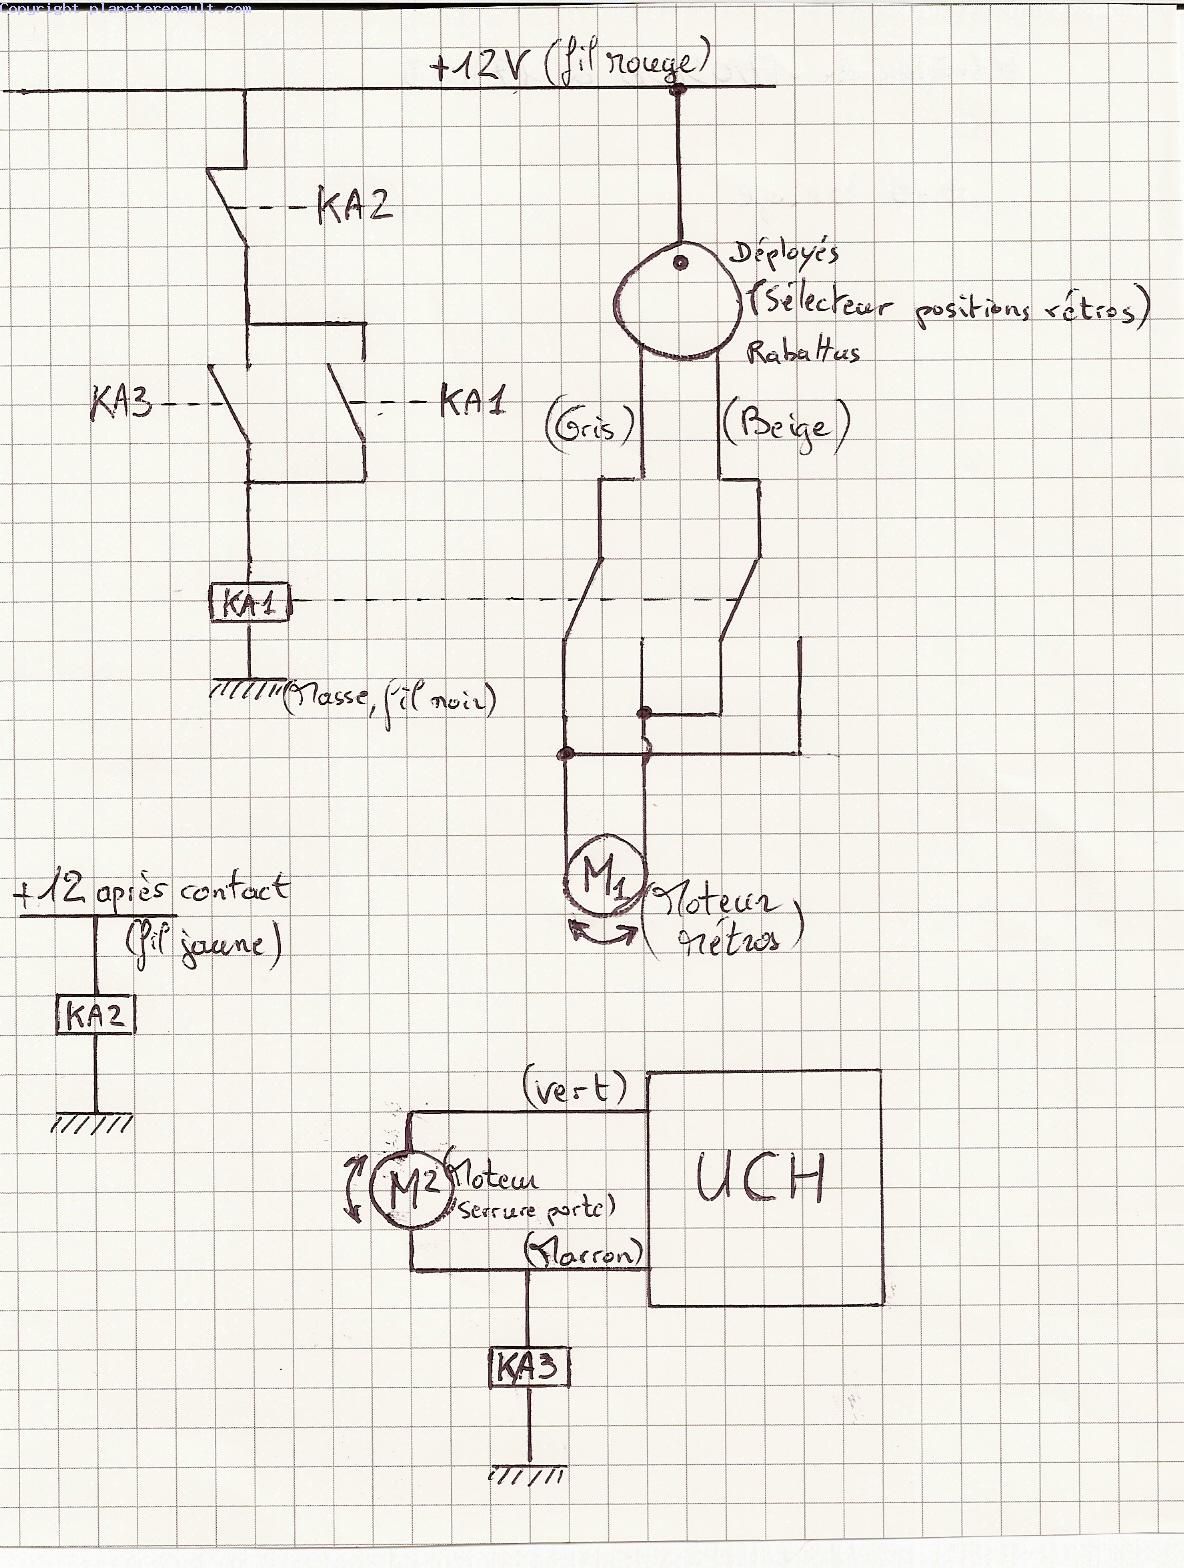 Copyright planeterenault.com
+12V (fil rouge)
KA2
Déployés
(Sélecteur positions rétros)
Rabattus
KA3
KA1
(Gris)
(Beige)
KA1
(Masse, fil noir)
+12 après contact
(fil jaune)
M1
(Moteur
rétros)
KA2
(vert)
UCH
M2
(Moteur
serrure porte)
(Marron)
KA3